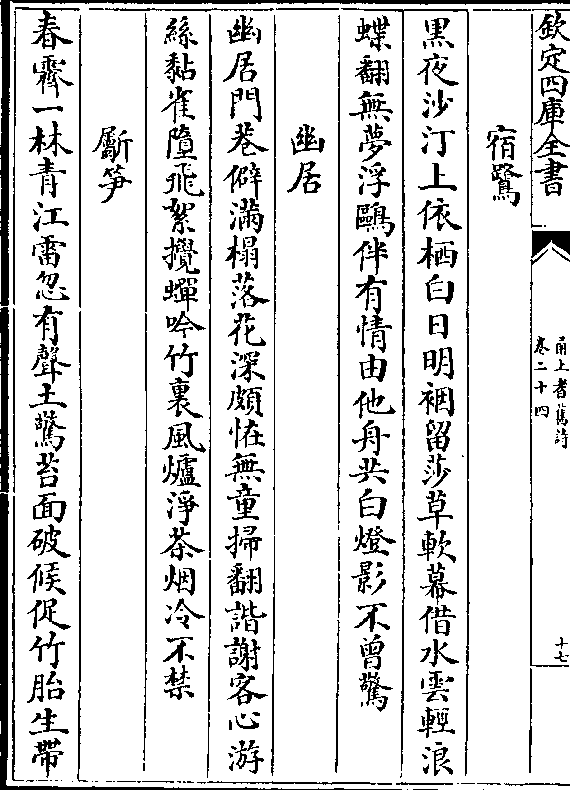 欽定四庫全書
甬上耆舊詩
卷二十四
十七
宿鷺
黒夜沙汀上依栖白日明裀留莎草軟幕借水雲輕浪
蝶翻無夢浮鷗伴有情由他舟共白燈影不曾驚
幽居
幽居門巷僻滿榻落花深頗怪無童掃翻諧謝客心游
絲黏雀墮飛絮攪蟬吟竹裏風爐淨茶烟冷不禁
斸笋
春霽一林青江雷忽有聲土驚苔面破候促竹胎生帶